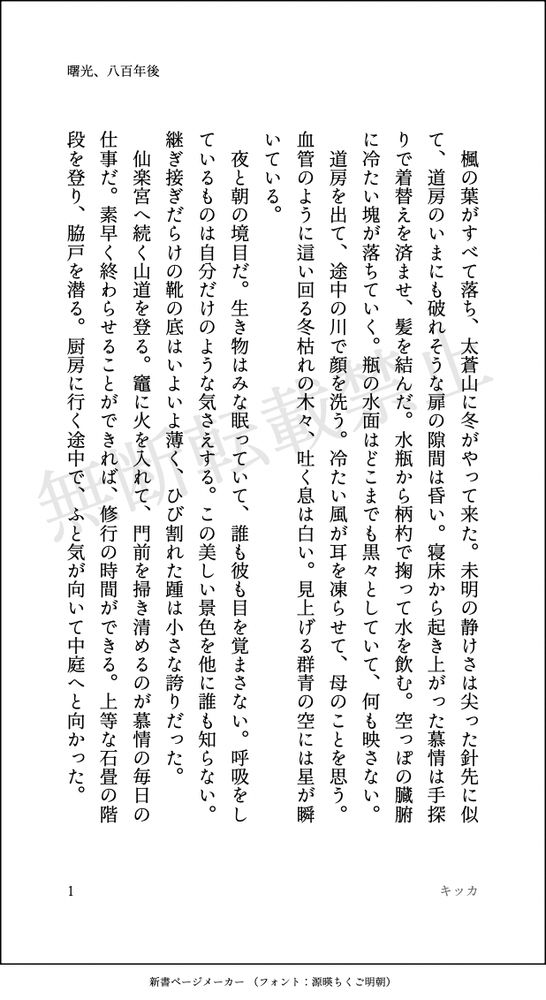 曙光、八百年後
　楓の葉がすべて落ち、太蒼山に冬がやって来た。未明の静けさは尖った針先に似
て、道房のいまにも破れそうな扉の隙間は昏い。寝床から起き上がった慕情は手探
りで着替えを済ませ、髪を結んだ。水瓶から柄杓で掬って水を飲む。空っぽの臓腑
に冷たい塊が落ちていく。瓶の水面はどこまでも黒々としていて、何も映さない。
　道房を出て、途中の川で顔を洗う。冷たい風が耳を凍らせて、母のことを思う。
血管のように這い回る冬枯れの木々、吐く息は白い。見上げる群青の空には星が瞬
いている。
　夜と朝の境目だ。生き物はみな眠っていて、誰も彼も目を覚まさない。呼吸をし
ているものは自分だけのような気さえする。この美しい景色を他に誰も知らない。
継ぎ接ぎだらけの靴の底はいよいよ薄く、ひび割れた踵は小さな誇りだった。
　仙楽宮へ続く山道を登る。竈に火を入れて、門前を掃き清めるのが慕情の毎日の
仕事だ。素早く終わらせることができれば、修行の時間ができる。上等な石畳の階
段を登り、脇戸を潜る。厨房に行く途中で、ふと気が向いて中庭へと向かった。
無断転載禁止
1
キッカ
新書ページメーカー（フォント：源暎ちくご明朝）